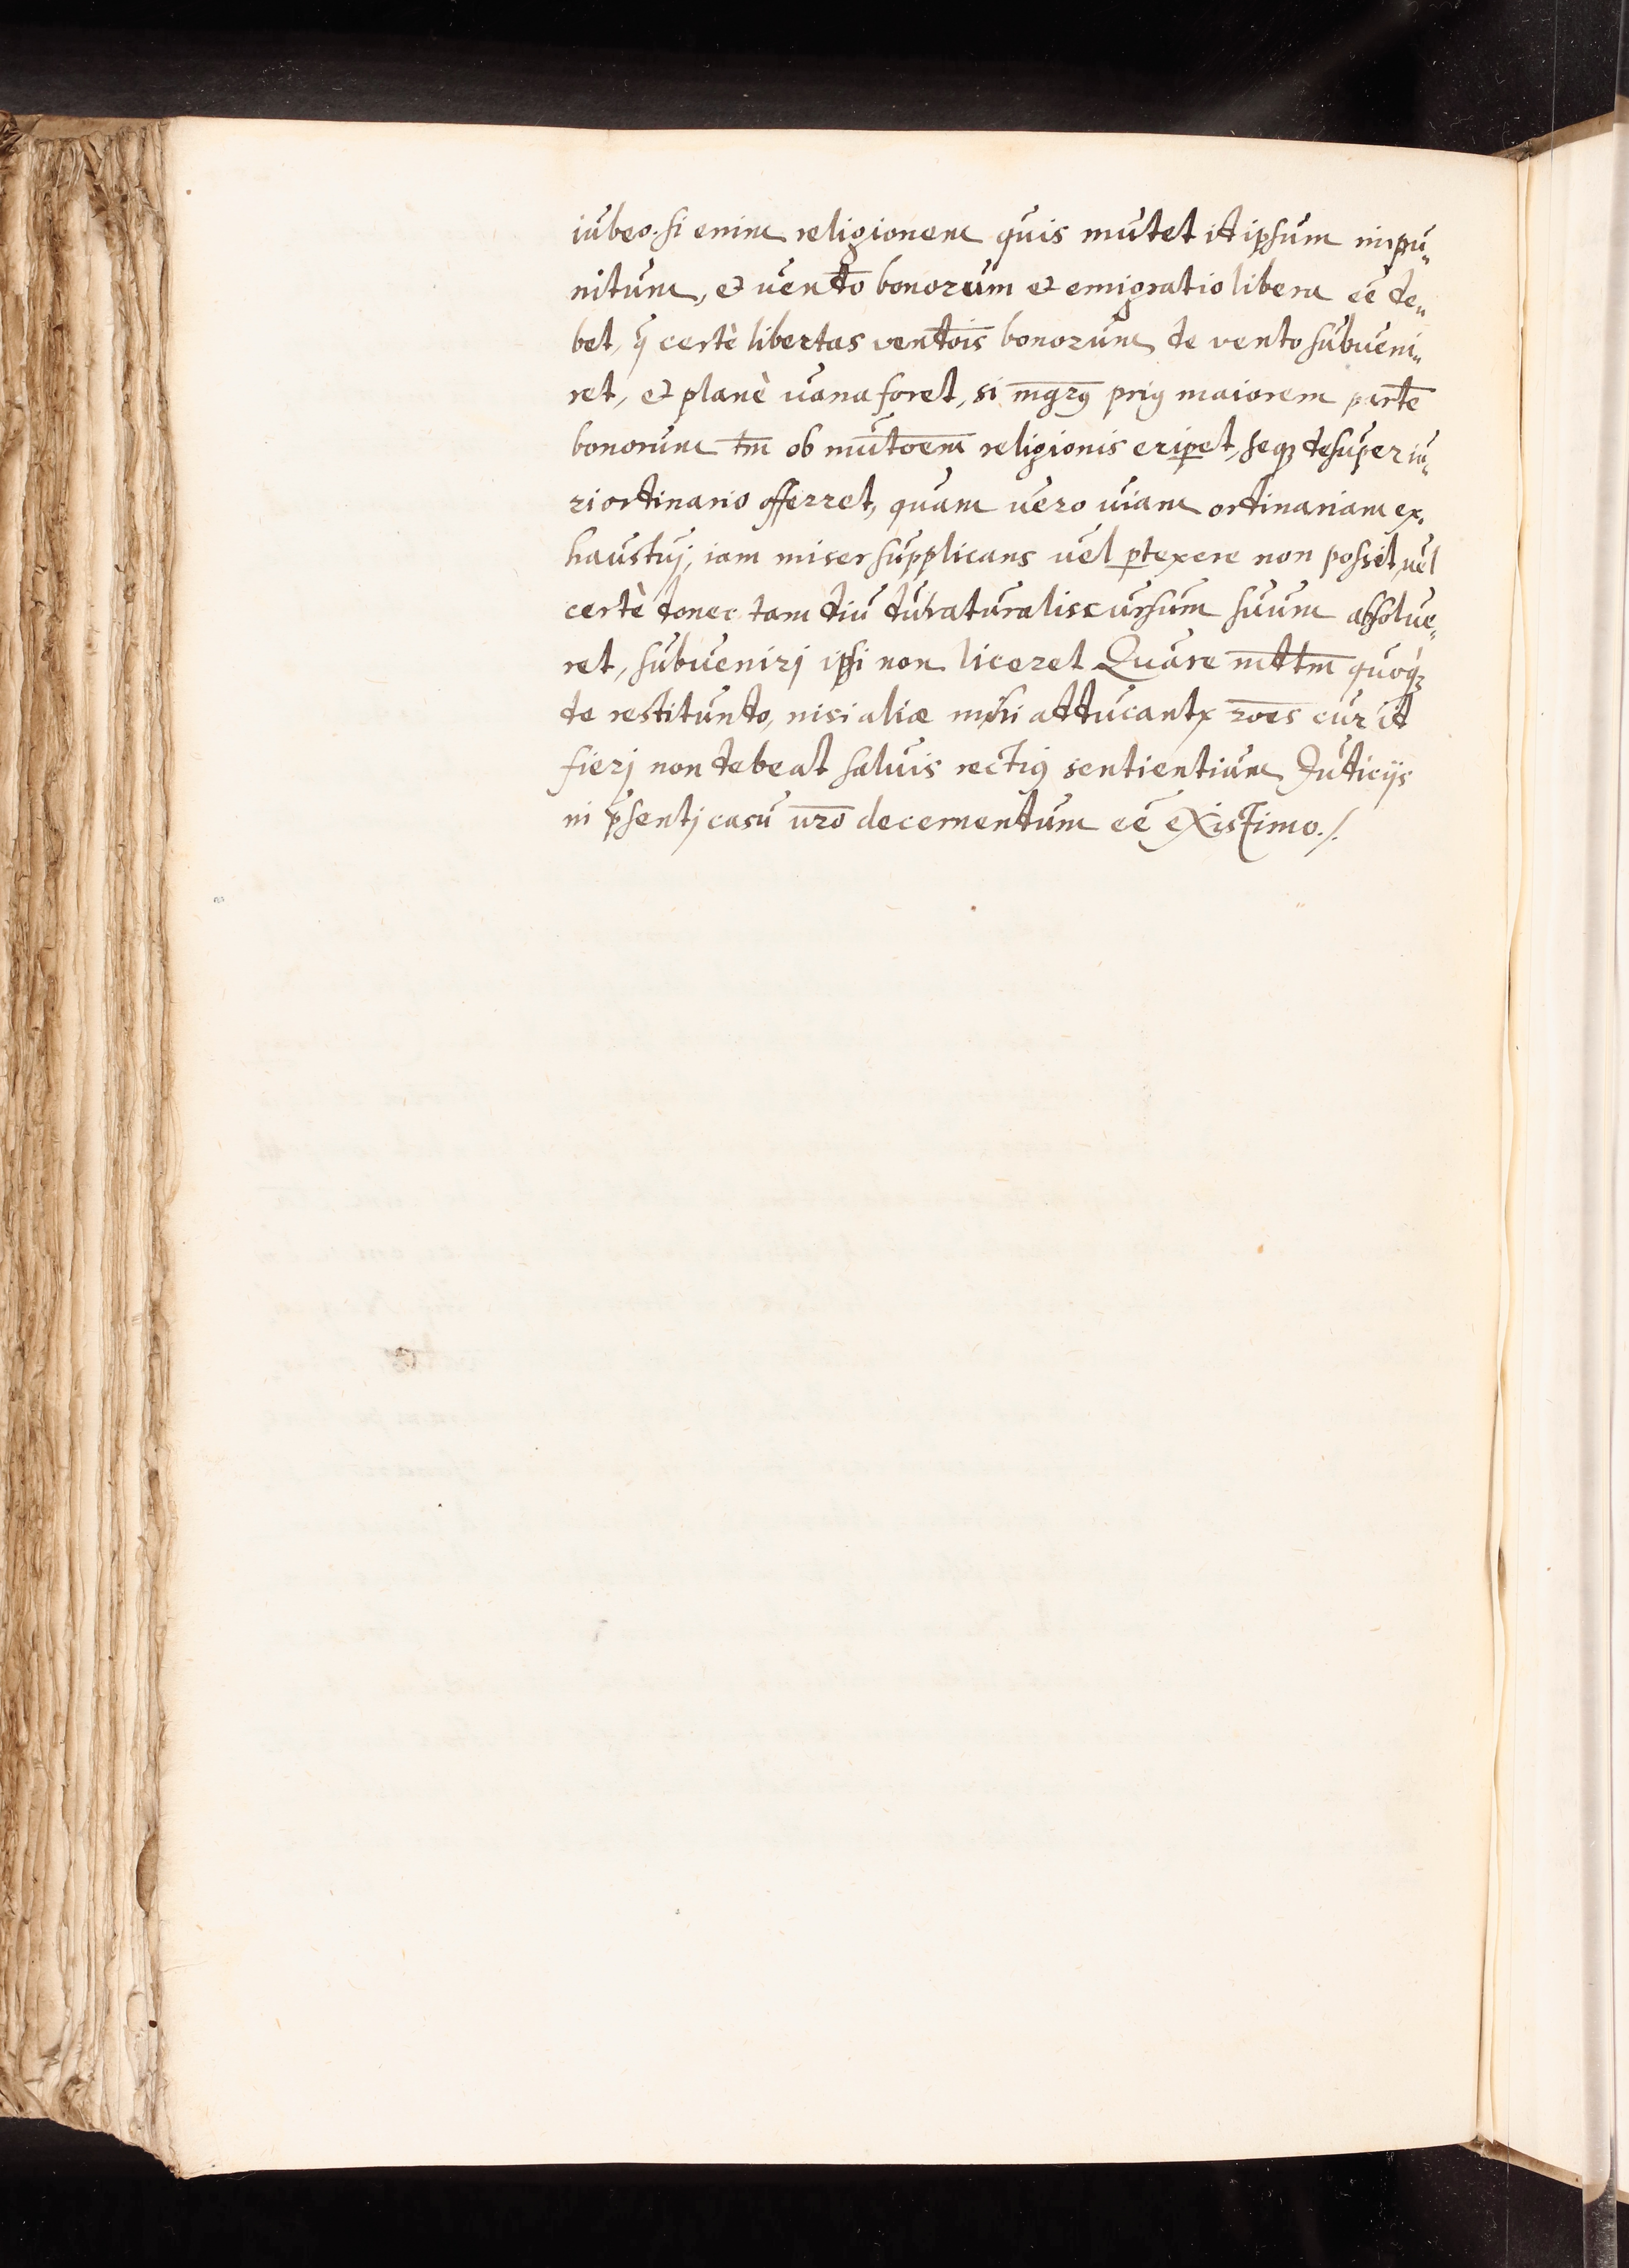 iubeo. si enim religionem quis mutet id ipsum impu„
nitum, et uendo bonorum et emigratio libera eē de„
bet, q certè libertas vendois bonorum de vento subueni„
ret, et planè vana foret, si mgrꝯ priꝯ maiorem partē
bonorum tm ob mutoem religionis eripet, seqꝫ desuper iu„
ri ordinario offerret, quam uero uiam ordinariam ex„
haustuj, iam miser supplicans uel ptexere non possit, uel
certè donec tam diu cursum suum absolue„
ret, subuenirj ipsi non liceret Quare mdtm quoqꝫ
de restitundo, nisi aliæ adducantr roes cur id
fierj non debeat saluis rectiꝯ sentientium Judicijs
in psentj casu uro decernendum eē existimo./.